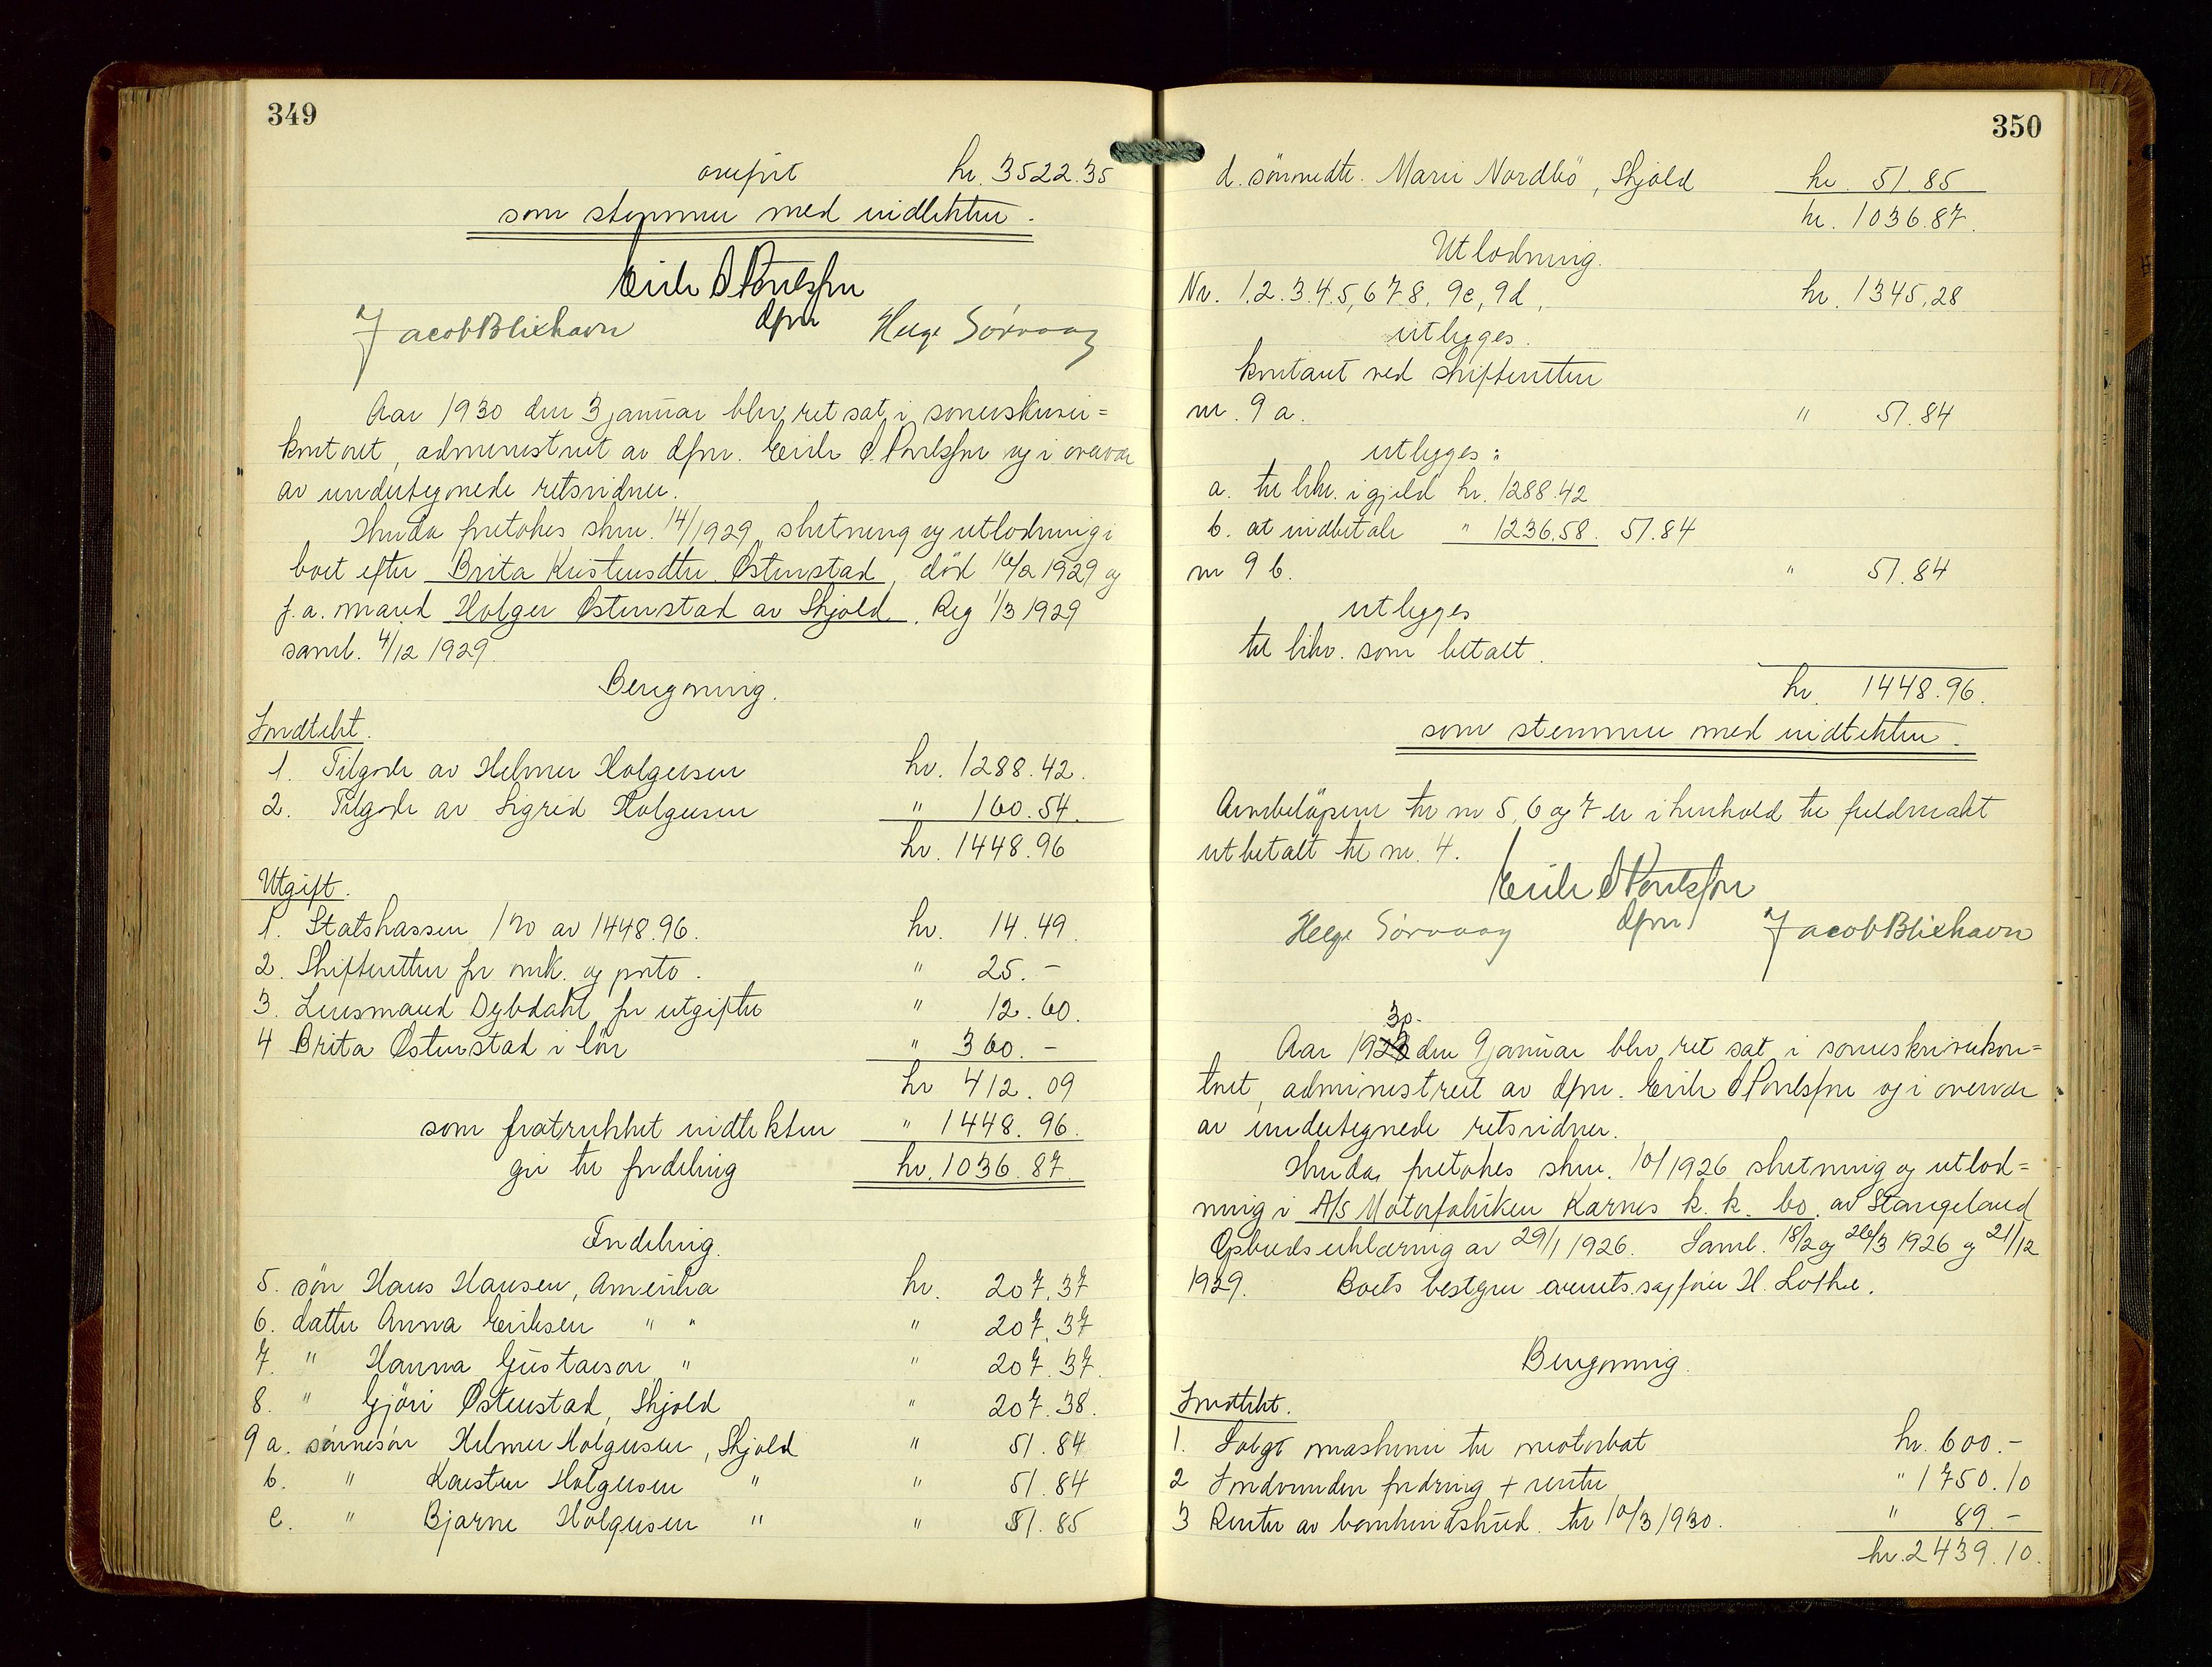 349
overført kr. 3522.35
som stemmer med indtekten.
Eirik S Poulsson
dfm
Jacob Blixhavn Helge Sörvaag
Aar 1930 den 3 januar blev ret sat i sorenskriver=
kontoret, administrert av dfm. Eirik S. Poulsson og i overvær
av undertegnede retsvidner.
Hvorda foretokes skm. 14/1929 slutning og utlodning i
boet efter Brita Kristensdtr. Østenstad, död 16/2 1929 og
f. a. mand Holger Østenstad av Skjold. Reg 1/3 1929
saml. 4/12 1929
Beregning.
Indtekt.
1. Tilgode av Helmer Holgersen kr. 1288.42.
2. Tilgode av Sigrid Holgersen " 160.54.
kr. 1448.96
Utgift.
1. Statskassen 1% av 1448.96. kr. 14.49
2. Skifteretten for omk. og porto. " 25.-
3. Lensmand Dybdahl for utgifter " 12.60.
4 Brita Østenstad i lön " 360.-
kr 412.09
som fratrukket indtekten " 1448.96.
gir til fordeling kr. 1036.87.
Fordeling.
5. sön Hans Hansen, Amerika kr. 207.37
6. datter Anna Eriksen " " " 207.37
7. " Hanna Gustavson " " 207.37.
8. " Gjöri Østenstad, Skjold " 207.38.
9 a. sönnesön Helmer Holgersen, Skjold " 51.84
b. " Karsten Holgersen " " 51.84
c. " Bjarne Holgersen " " 51.85
350
d. sönnedtr. Marie Nordbö, Skjold kr 51.85
kr. 1036.87.
Utlodning.
Nr. 1.2.3.4.5,6 7 8. 9c, 9d, kr. 1345,28
utlegges.
kontant ved skifteretten
nr. 9 a. " 51.84
utlegges:
a. til likv. i gjeld kr. 1288.42
b. at indbetale " 1236.58. 51.84
nr 9 b. " 51.84
utlegges
til likv. som betalt.
kr 1448.96.
som stemmer med indtekten.
Arvebelöpene til nr 5, 6 og 7 er i henhold til fuldmakt
utbetalt til nr. 4.
Eirik S Poulsson
Helge Sörvaag dfm Jacob Blixhavn
30.
Aar 1923 den 9 januar blev ret sat i sorenskriverkon=
toret, administrert av dfm. Eirik S Poulsson og i overvær
av undertegnede retsvidner.
Hvorda foretokes skm. 10/1926 slutning og utlod=
ning i A/S Motorfabriken Karnes k. k. bo. av Stangeland
Opbudserklæring av 29/1 1926. Saml. 18/2 og 26/3 1926 og 21/12
1929. Boets bestyrer overrets.sagförer H. Lothe.
Beregning.
Indtekt.
1. Solgt maskineri til motorbåt kr. 600.-
2 Indvunden fordring + renter " 1750.10
3 Renter av bankindskud. til 10/3 1930. " 89.-
kr. 2439.10.